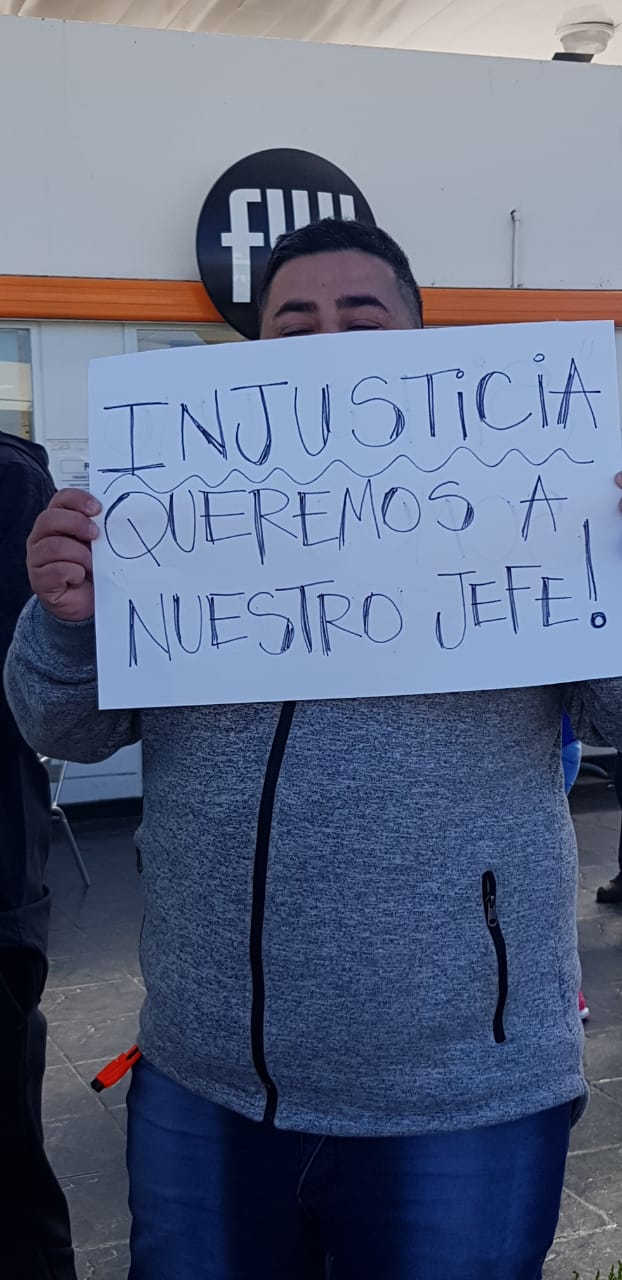 INJUSTICIA
QUEREMOS A
NUESTRO JEFE!